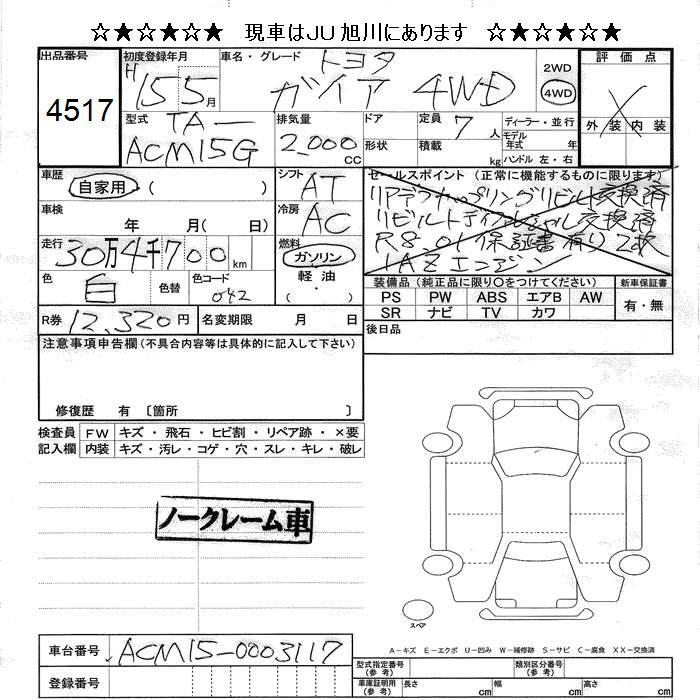 ☆★☆★☆★ 現車はJU旭川にあります ☆★☆★☆★
出品番号 初度登録年月 車名・グレード 評価点
4517 H15 5月 トヨタ ガイア 4WD 2WD 4WD
型式 排気量 ドア 定員 ディーラー・並行 外装 内装
TA- ACM15G 2,000 CC 形状 7人 積載 kg モデル年式 年 ハンドル 左・右
車歴 シフト セールスポイント (正常に機能するものに限ります)
自家用 ( ) AT リアデフカップリングリビルト交換済
車検 冷房 リビルトディファレンシャル交換済
年 月( 日) AC R8.01 保証書有り 2枚
走行 燃料 1AZエンジン
30万4千700km ガソリン
色 色替 色コード 軽油 装備品 (純正品に限り〇をつけてください) 新車保証書
白 042 ( ・ ) PS PW ABS エアB AW 有・無
SR ナビ TV カワ
R券 12,320円 名変期限 月 日 後日品
注意事項申告欄(不具合内容等は具体的に記入して下さい)
修復歴 有 〔箇所 〕
検査員 FW キズ・飛石・ヒビ割・リペア跡・×要
記入欄 内装 キズ・汚レ・コゲ・穴・スレ・キレ・破レ
ノークレーム車
スペア
A-キズ E-エクボ U-凹み W-補修跡 S-サビ C-腐食 XX-交換済
車台番号 ACM15-0003117
登録番号
型式指定番号(参考) 類別区分番号(参考)
車庫証明用(参考) 長さ cm 幅 cm 高さ cm